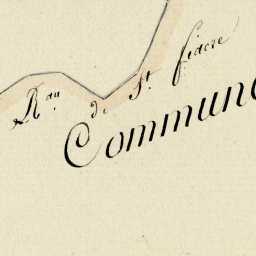 R.au de St fiacre
Commun